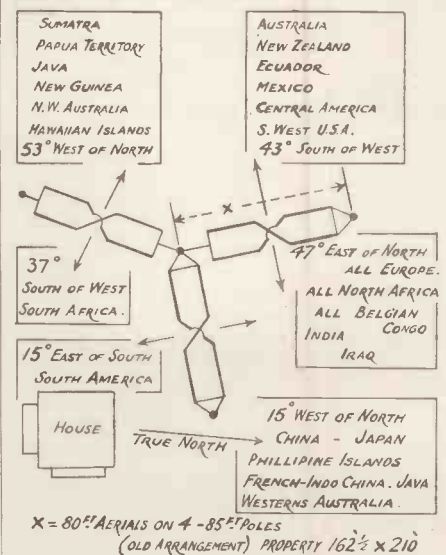 SUMATRA
PAPUA TERRITORY
JAVA
NEW GUINEA
N.W. AUSTRALIA
HAWAIIAN ISLANDS
53° WEST OF NORTH
AUSTRALIA
NEW ZEALAND
ECUADOR
MEXICO
CENTRAL AMERICA
S. WEST U.S.A.
43° SOUTH OF WEST
X
37°
SOUTH OF WEST
SOUTH AFRICA.
47° EAST OF NORTH
ALL EUROPE.
ALL NORTH AFRICA
ALL BELGIAN
CONGO
INDIA
IRAQ
15° EAST OF SOUTH
SOUTH AMERICA
HOUSE
TRUE NORTH
15° WEST OF NORTH
CHINA - JAPAN
PHILLIPINE ISLANDS
FRENCH-INDO CHINA. JAVA
WESTERNS AUSTRALIA.
X = 80 FT AERIALS ON 4 -85 FT POLES
(OLD ARRANGEMENT) PROPERTY 162½' x 210'